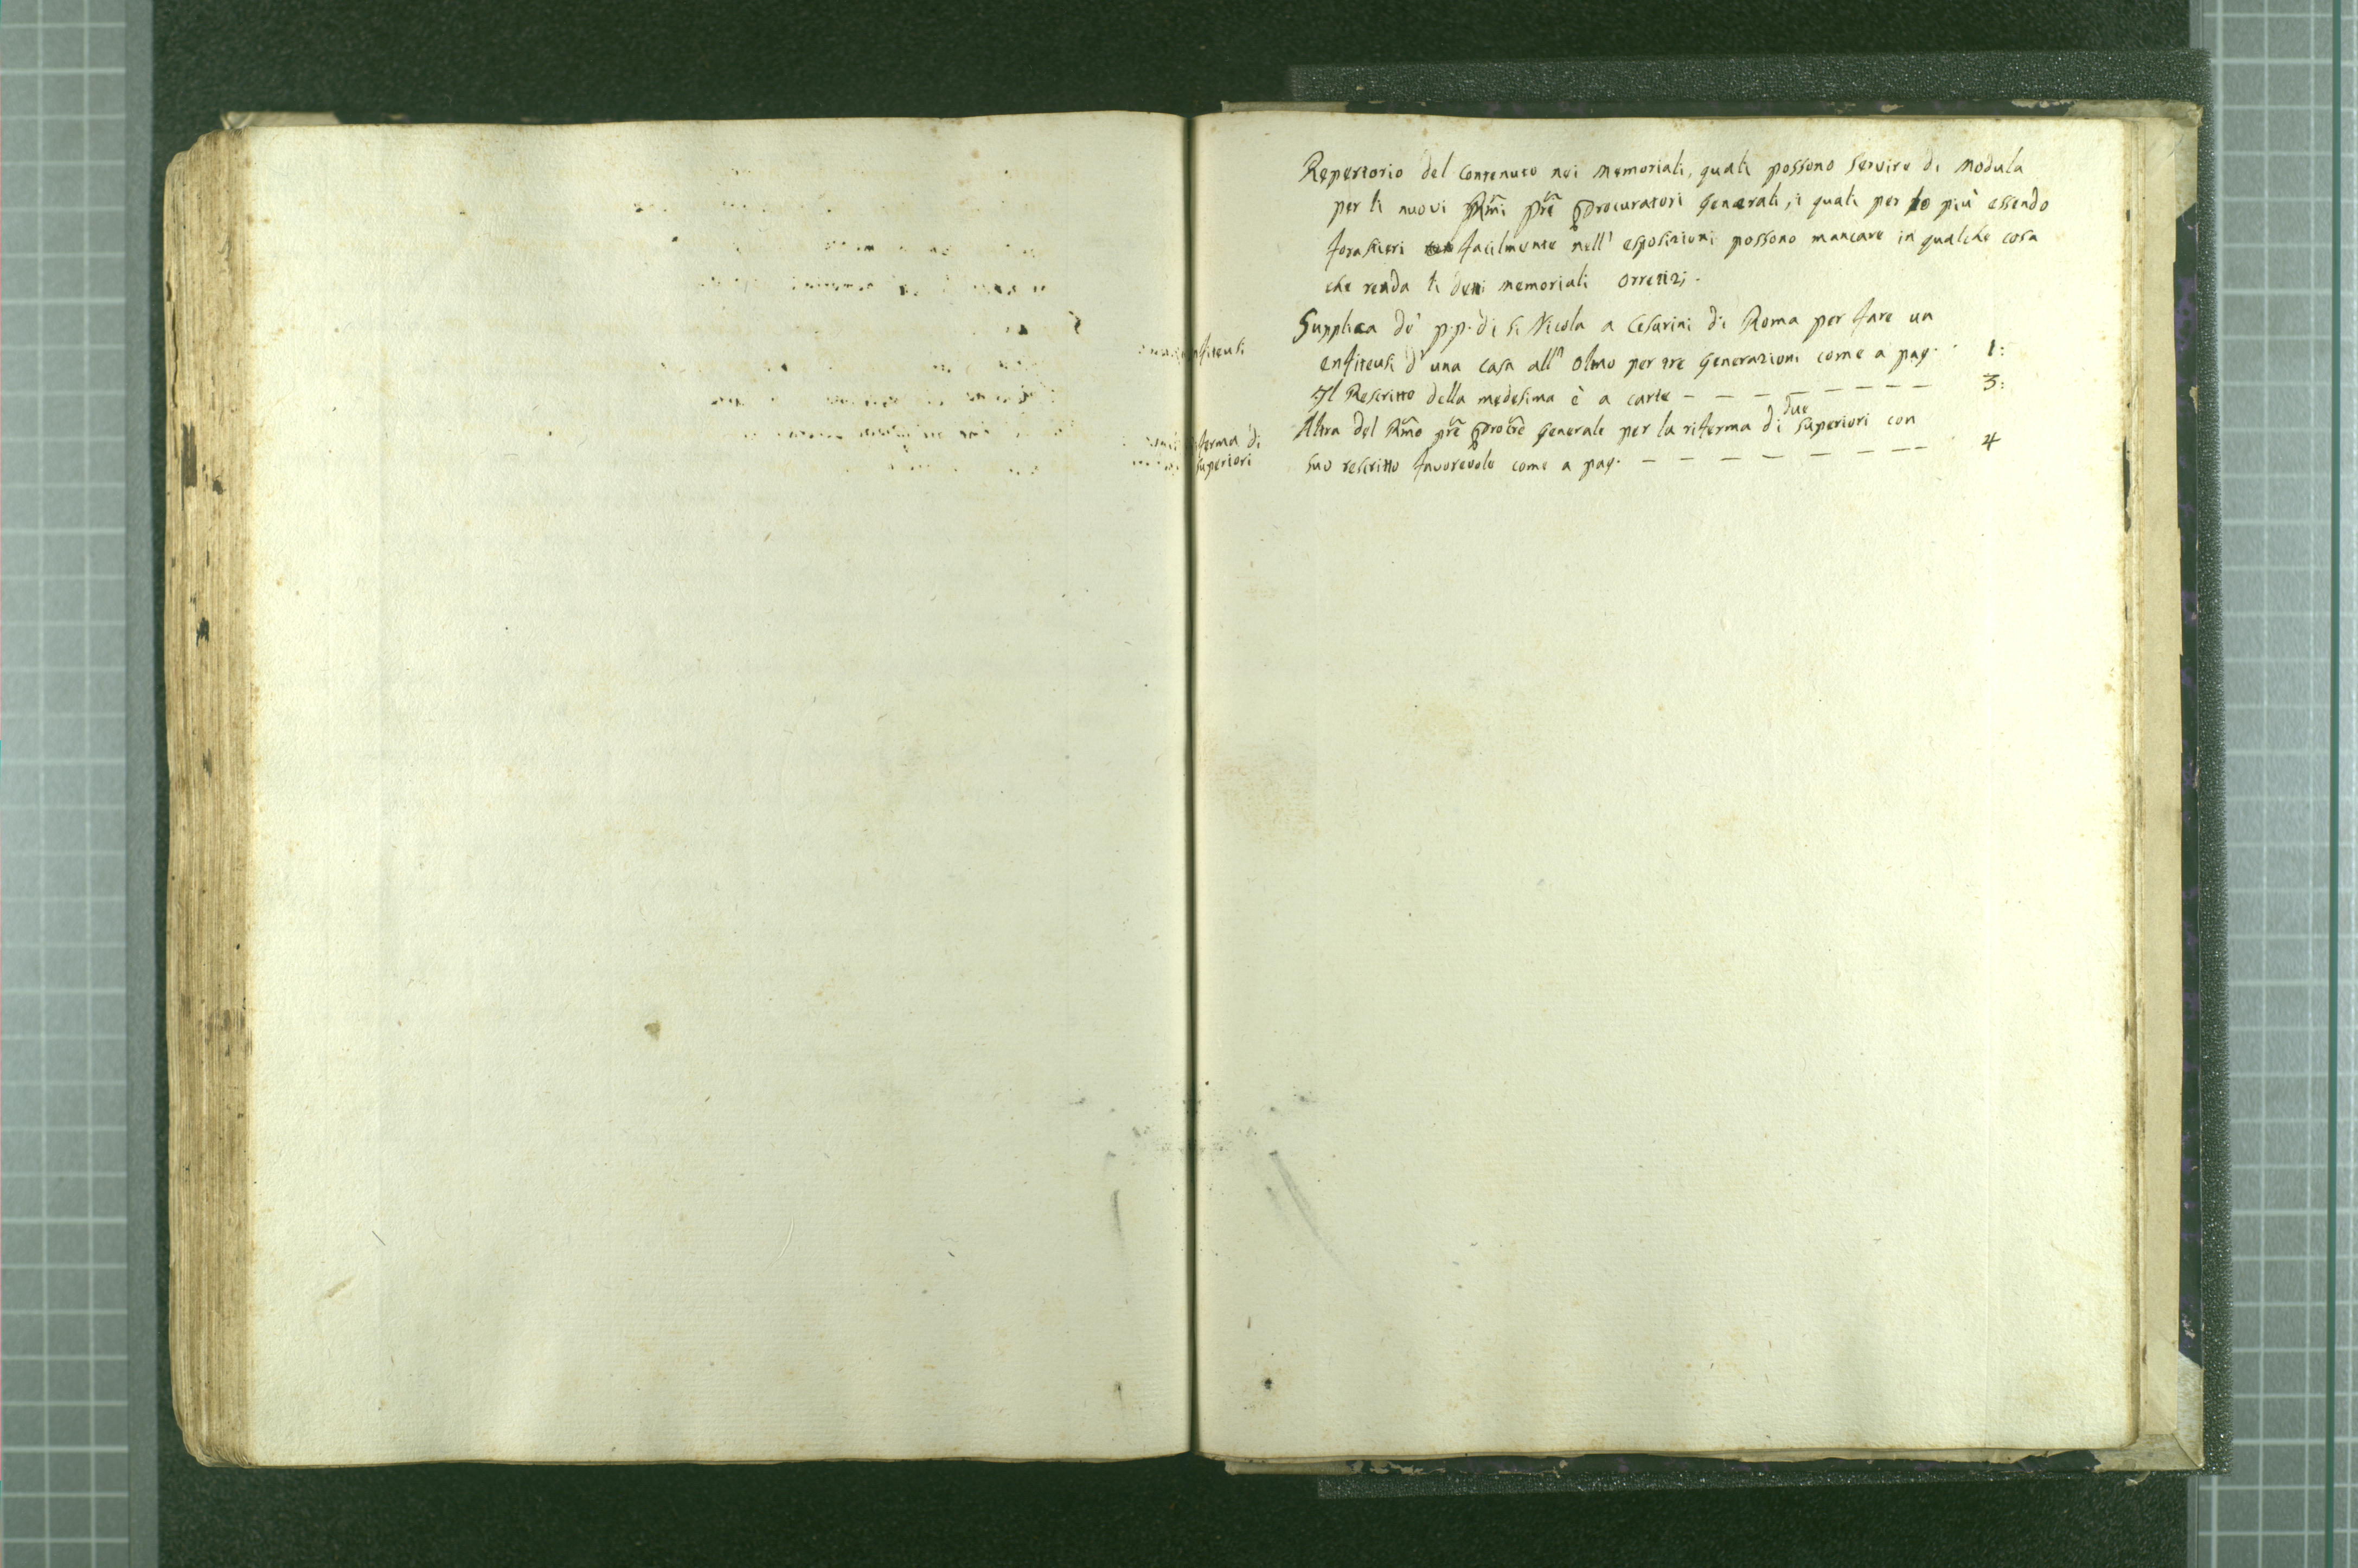 Repertorio del contenuto nei memoriali, quali possono servire di modula
per li nuovi Rm̃i Prẽ Procuratori Generali, i quali per lo più essendo
forastieri facilmente nell' esposizioni possono mancare in qualche cosa
che renda li detti memoriali orretizj.
Supplica de' p.p. di S. Nicola a Cesarini di Roma per fare un
enfiteusi d' una casa all' olmo per tre generazioni come a pag. 1:
enfiteusi
Il Rescritto della medesima è a carte - - - - - - - - 3:
Altra del Rm̃o prẽ Procrẽ Generale per la riferma di due superiori con
suo rescritto favorevole come a pag. - - - - - - - - 4
ferma di
superiori